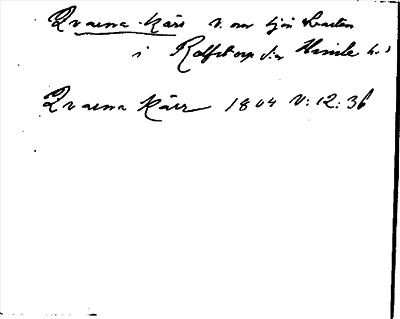 Qvarna-kärr v. om sjön Svarten
i Rolfstorp s:n Himle h.
Qvarna kärr 1804 V:12:36